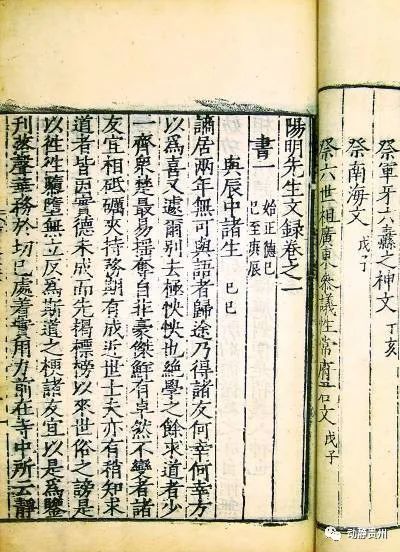 祭軍牙六纛之神文 丁亥
祭南海文 戊子
祭六世祖廣東參議性常府君文 戊子
陽明先生文録卷之一
書一 始正德己巳至庚辰
與辰中諸生 己巳
謫居兩年無可與語者歸途乃得諸友何幸何幸方
以爲喜又遽爾别去極怏怏也絶學之餘求道者少
一齊衆楚最易揺奪自非豪傑鮮有卓然不變者諸
友宜相砥礪夾持務期有成近世士夫亦有稍知求
道者皆因實德未成而先揭標榜以來世俗之謗是
以徃徃隳墮無立反爲斯道之梗諸友宜以是爲鑒
刋落聲華務於切己處着實用力前在寺中所云靜
动静贵州